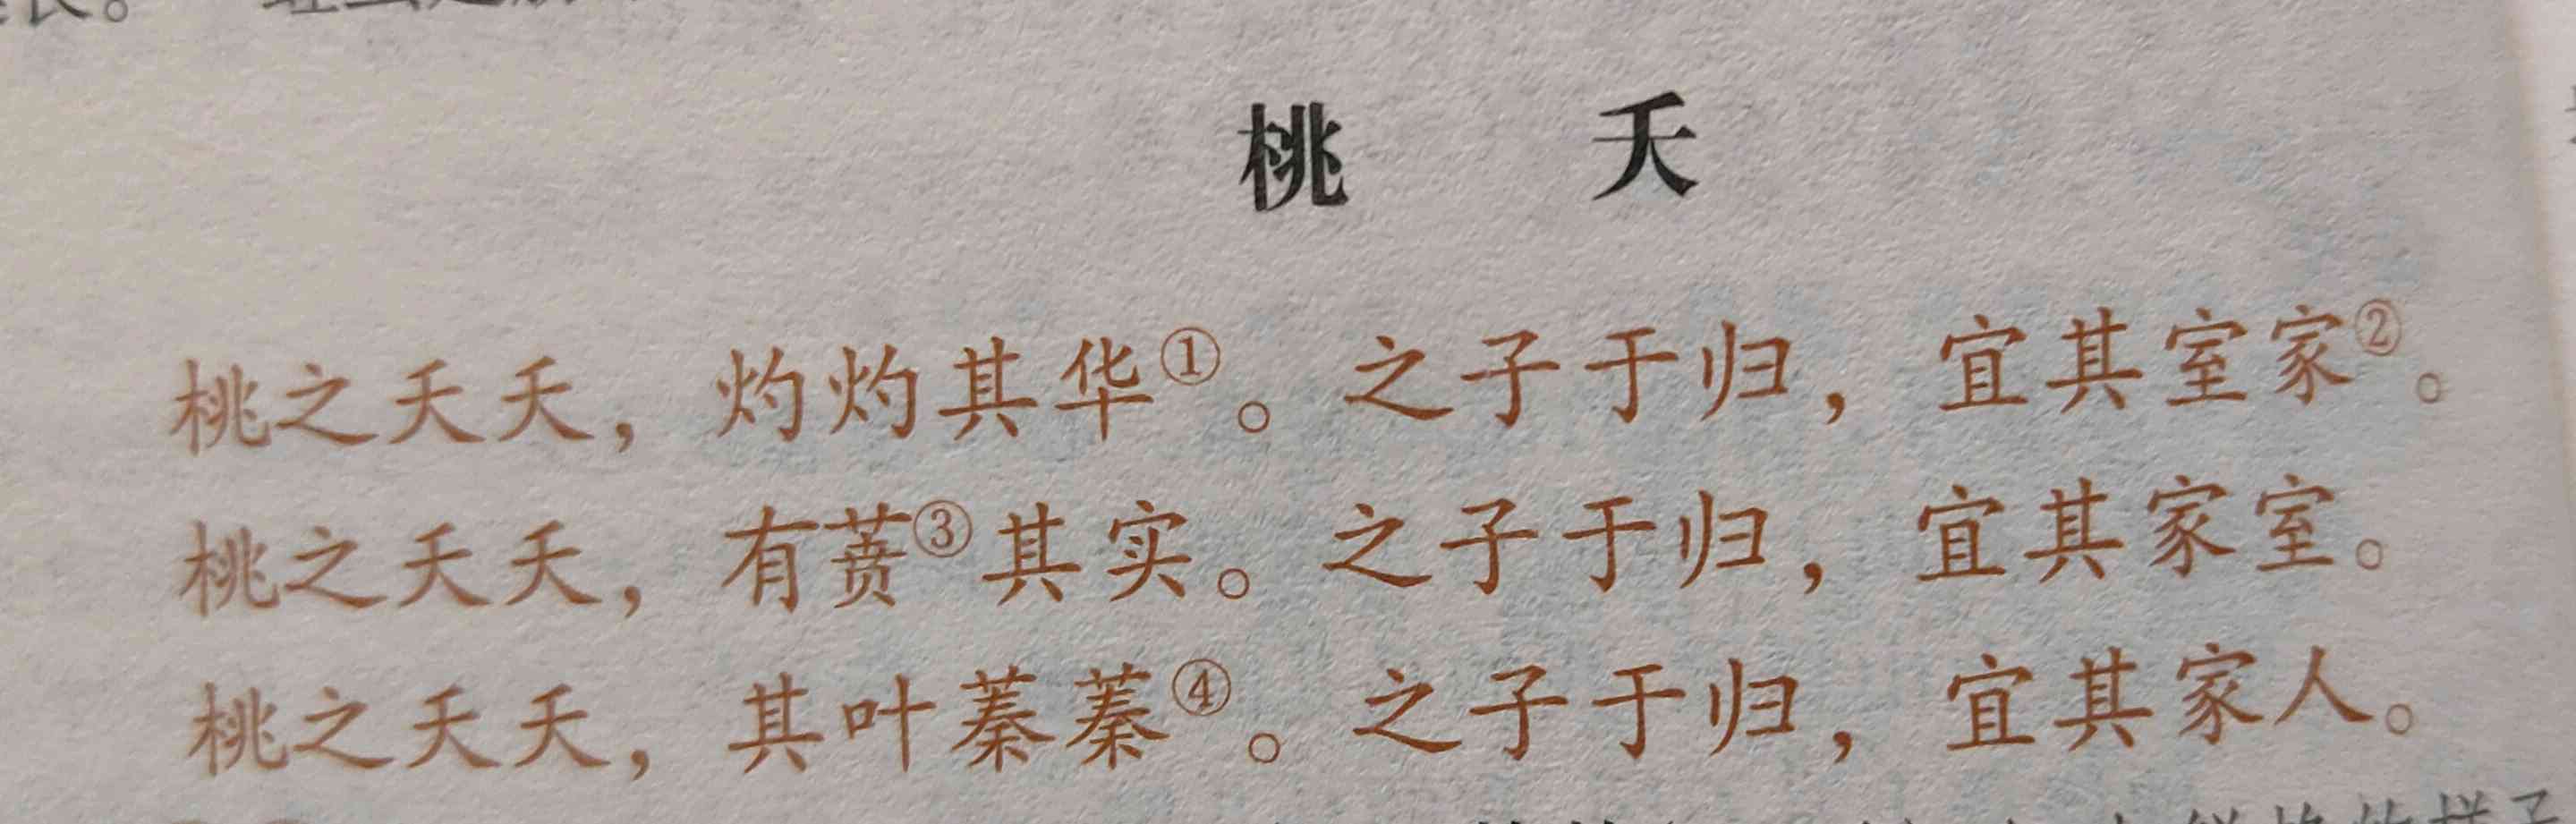 桃夭
桃之夭夭，灼灼其华①。之子于归，宜其室家②。
桃之夭夭，有蕡③其实。之子于归，宜其家室。
桃之夭夭，其叶蓁蓁④。之子于归，宜其家人。